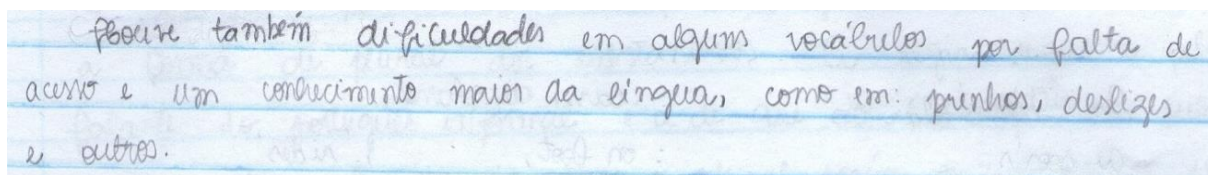 Houve também dificuldades em alguns vocábulos por falta de
acesso e um conhecimento maior da língua, como em: prenhos, deslizes
e outros.